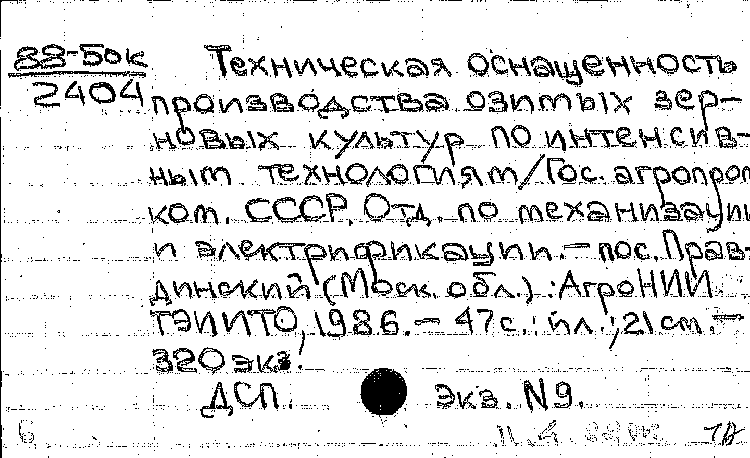 88-5ок
2404
Техническая оснащенность
производства озимых зер-
новых культур по интенсив-
ным технологиям/Гос. агропром
ком. СССР, Отд. по механизации
и электрификации.– пос. Прав-
динский (Моск. обл.) : АгроНИИ
ТЭИИТО, 1986.– 47 с. : ил. ; 21 см.–
320 экз.
ДСП. Экз. №9.
6